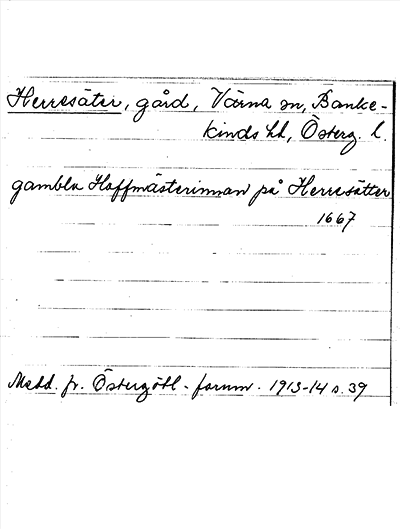 Herresäter, gård, Värna sn, Banke-
kinds hd, Österg. l.
gambla Hoffmästerinnan på Herresätter
1667
Medd. fr. Östergötl. fornm. 1913-14 s. 39